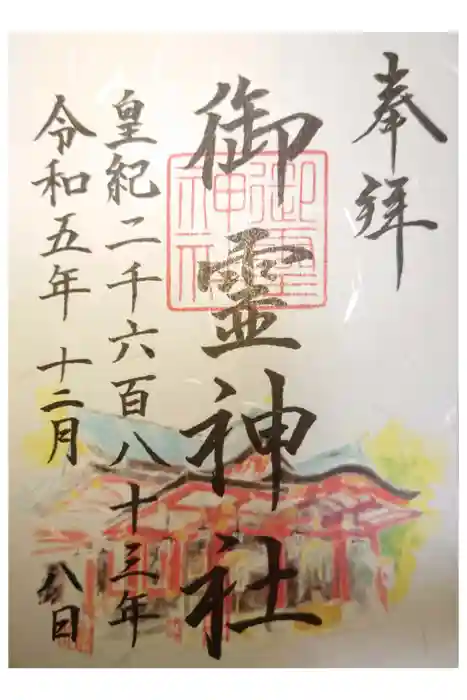 奉拝
御靈神社
御靈神社
皇紀二千六百八十三年
令和五年十二月八日